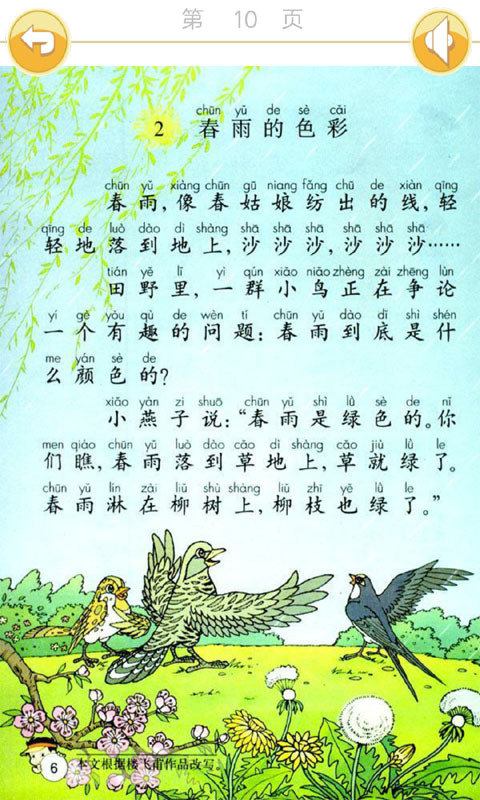 第 10 页
chūn yǔ de sè cǎi
2 春雨的色彩
chūn yǔ xiàng chūn gū niang fǎng chū de xiàn qīng
春雨,像春姑娘纺出的线,轻
qīng de luò dào dì shàng shā shā shā shā shā shā
轻地落到地上,沙沙沙,沙沙沙……
tián yě lǐ yì qún xiǎo niǎo zhèng zài zhēng lùn
田野里,一群小鸟正在争论
yí gè yǒu qù de wèn tí chūn yǔ dào dǐ shì shén
一个有趣的问题:春雨到底是什
me yán sè de
么颜色的?
xiǎo yàn zi shuō chūn yǔ shì lǜ sè de nǐ
小燕子说:“春雨是绿色的。你
men qiáo chūn yǔ luò dào cǎo dì shàng cǎo jiù lǜ le
们瞧,春雨落到草地上,草就绿了。
chūn yǔ lín zài liǔ shù shàng liǔ zhī yě lǜ le
春雨淋在柳树上,柳枝也绿了。”
6 本文根据楼飞甫作品改写。